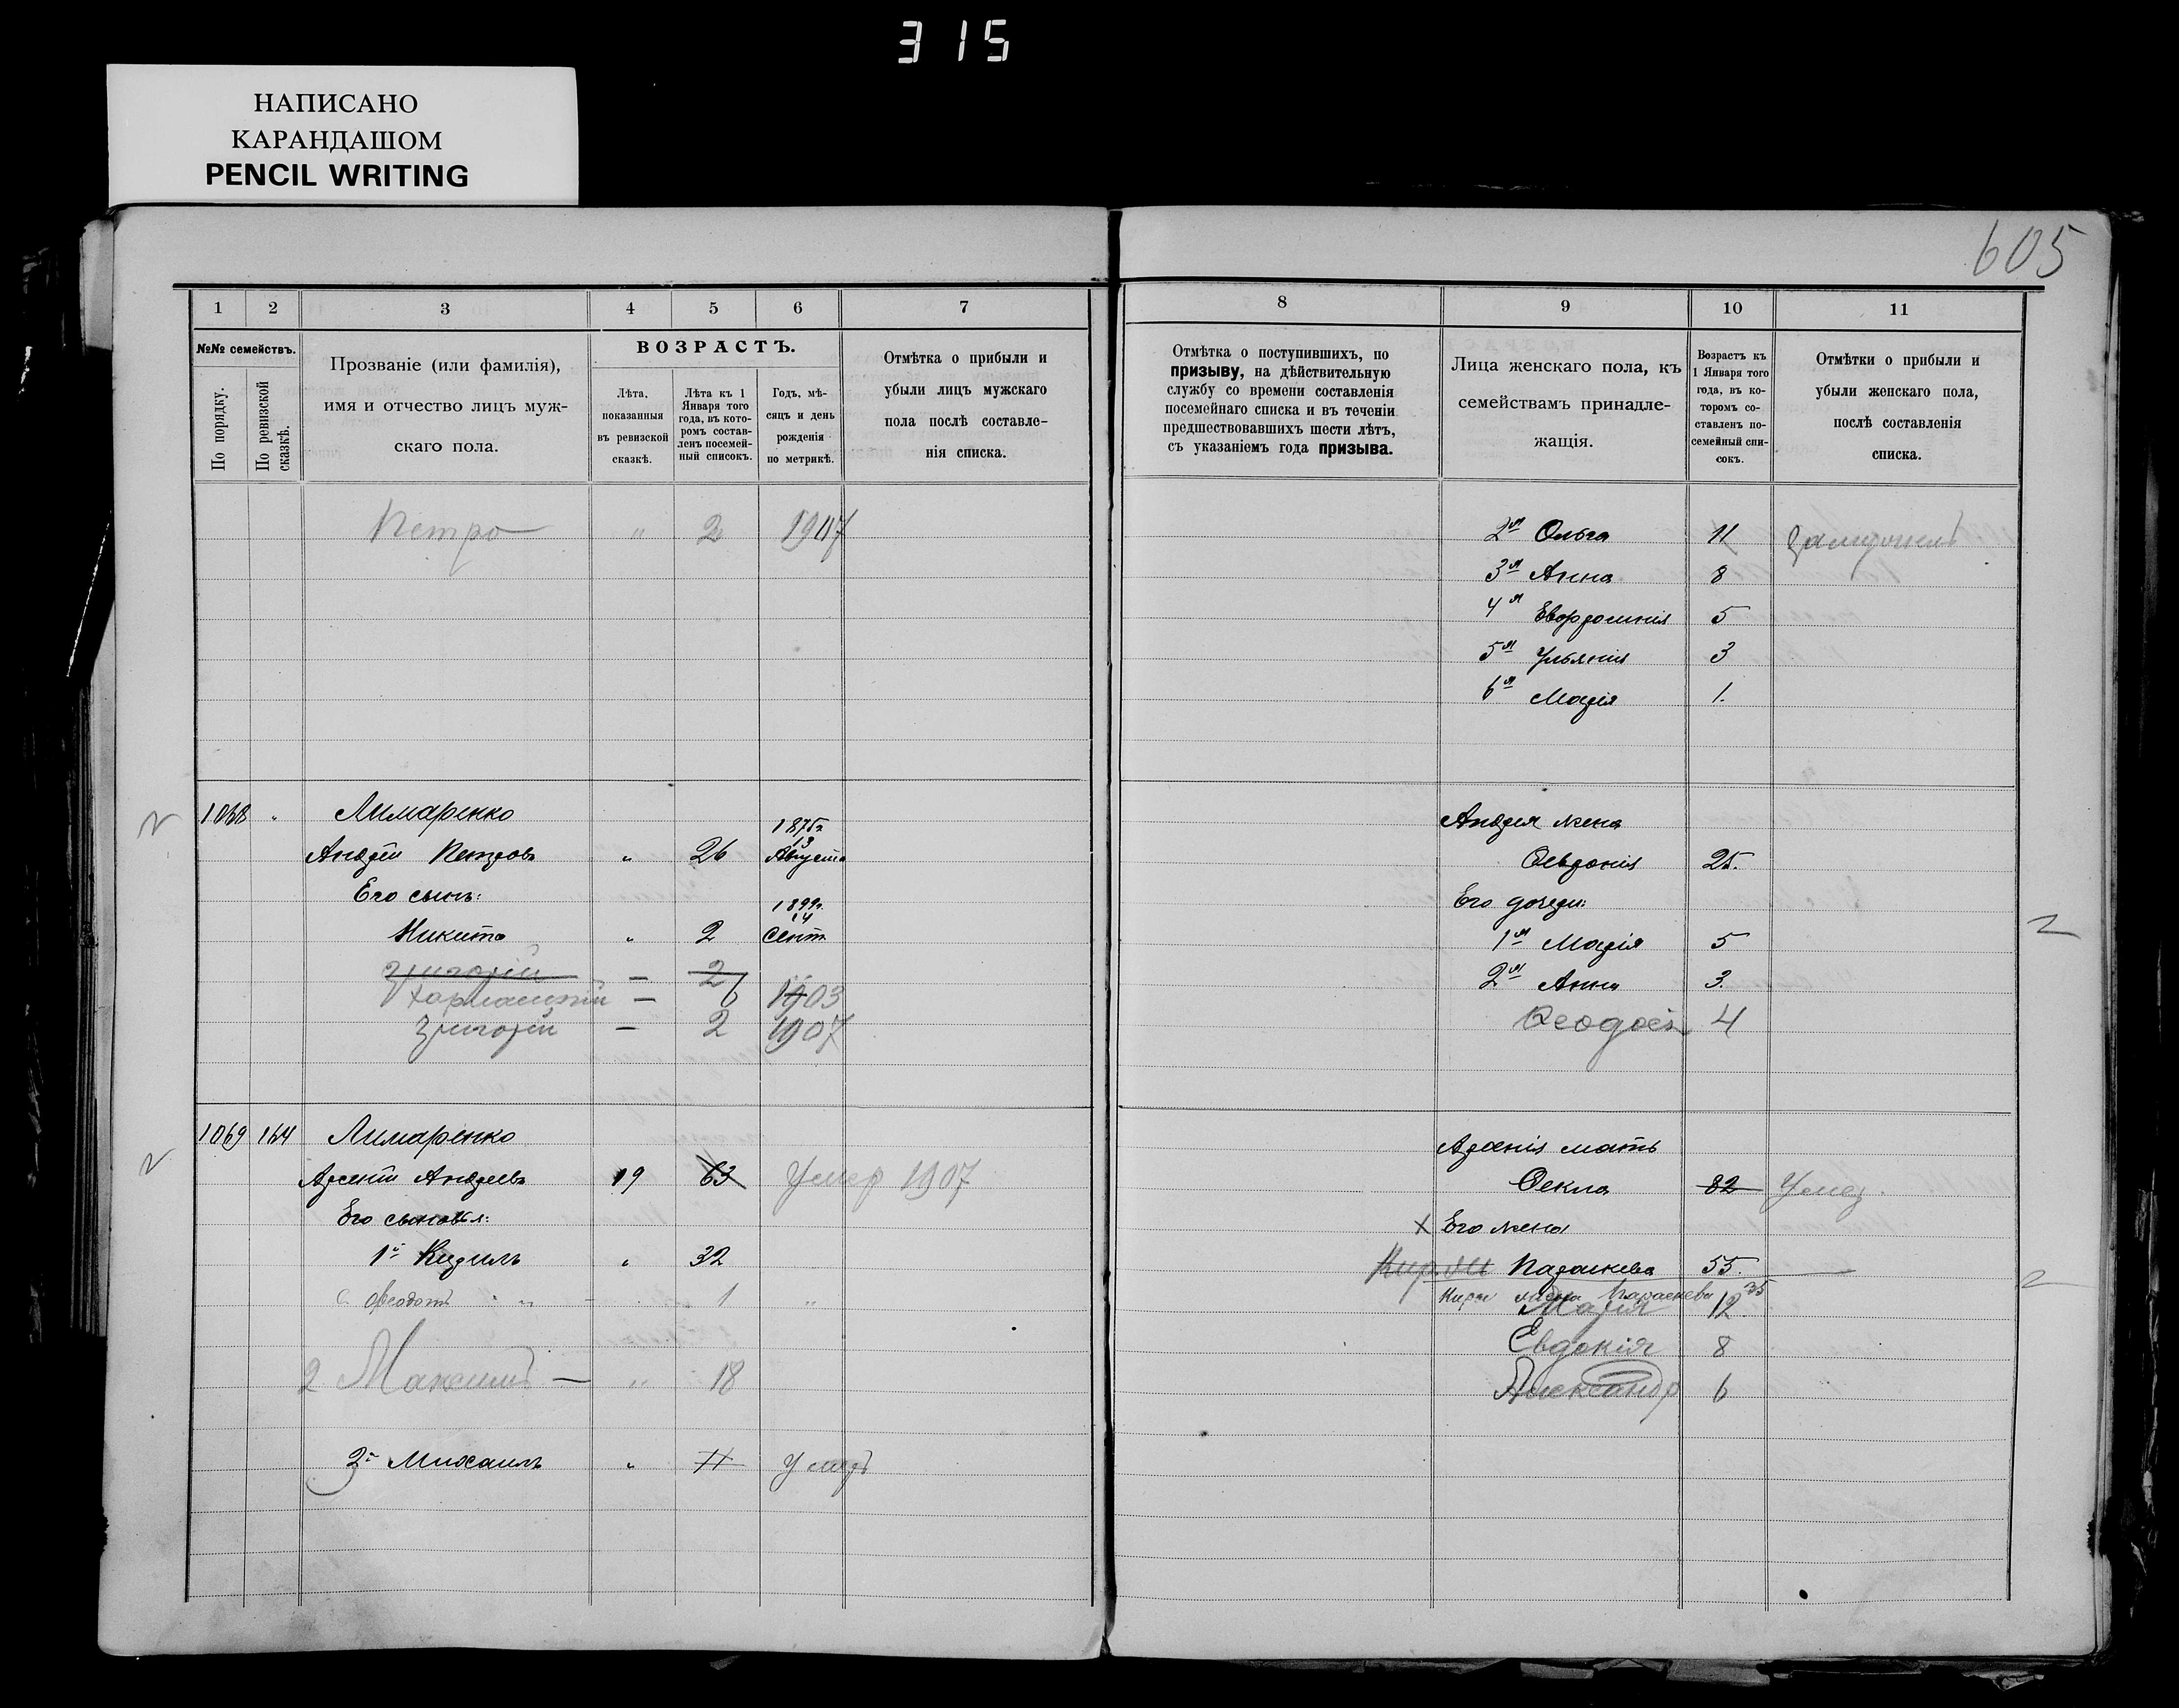 315
НАПИСАНО
КАРАНДАШОМ
PENCIL WRITING
605
1 2 3 4 5 6 7
№№ семействъ.
По порядку.
По ревизской сказкѣ.
Прозваніе (или фамилія),
имя и отчество лицъ муж-
скаго пола.
ВОЗРАСТЪ.
Лѣта,
показанныя
въ ревизской
сказкѣ.
Лѣта къ 1
Января того
года, въ кото-
ромъ состав-
ленъ посемей-
ный списокъ.
Годъ, мѣ-
сяцъ и день
рожденія
по метрикѣ.
Отмѣтка о прибыли и
убыли лицъ мужскаго
пола послѣ составле-
нія списка.
Петро " 2 1907
1068 " Лимаренко
1875г.
13
Андрѣй Петровъ " 26 Августа
Его сынъ:
1899г.
14
Никита " 2 Сент.
Григорій — 2
— 6 1903
Григорій — 2 1907
1069 164 Лимаренко
Арсеній Андреевъ 19 63 Умер 1907
Его сыновья:
1й Кирилъ " 32
с. Феодотъ " " – 1 "
2 Максимъ — " 18
2й Михаилъ " 11 Умеръ
8 9 10 11
Отмѣтка о поступившихъ, по
призыву, на дѣйствительную
службу со времени составленія
посемейнаго списка и въ теченіи
предшествовавшихъ шести лѣтъ,
съ указаніемъ года призыва.
Лица женскаго пола, къ
семействамъ принадле-
жащія.
Возрастъ къ
1 Января того
года, въ ко-
торомъ со-
ставленъ по-
семейный спи-
сокъ.
Отмѣтки о прибыли и
убыли женскаго пола,
послѣ составленія
списка.
2я Ольга 11
3я Анна 8
4я Евфросинія 5
5я Ульянія 3
6я Марія 1.
Андрея жена
Ѳевронія 25.
Его дочери:
1я Марія 5
2я Анна 3.
Ѳеодосія 4
Арсенія мать
Ѳекла 82 Умер.
х Его жена
Параскева 55.
Кири жена Параскева 35
Марія 12
Евдокія 8
Александр 6